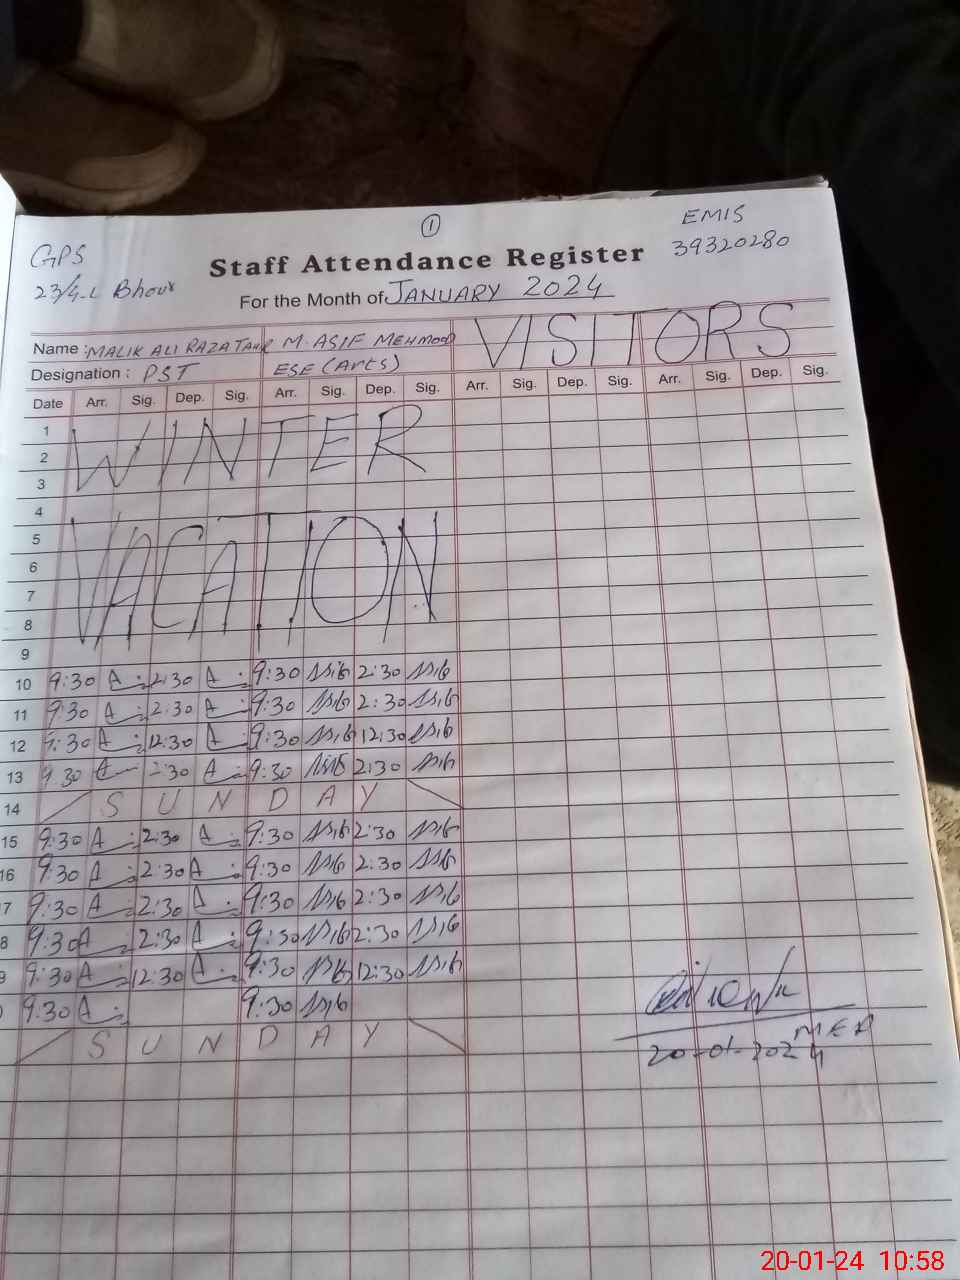 ①
EMIS
GPS
Staff Attendance Register
39320280
23/4-L Bhour
For the Month of JANUARY 2024
Name : MALIK ALI RAZA TAHIR M. ASIF MEHMOOD VISITORS
Designation : PST ESE (Arts)
Date Arr. Sig. Dep. Sig. Arr. Sig. Dep. Sig. Arr. Sig. Dep. Sig. Arr. Sig. Dep. Sig.
1
2 WINTER
3
4
5
6 VACATION
7
8
9
10 9:30 2:30 9:30 2:30
11 9:30 2:30 9:30 2:30
12 9:30 12:30 9:30 12:30
13 9:30 :30 9:30 2:30
14 SUNDAY
15 9:30 2:30 9:30 2:30
16 9:30 2:30 9:30 2:30
7 9:30 2:30 9:30 2:30
8 9:30 2:30 9:30 2:30
9 9:30 12:30 9:30 12:30
9:30 9:30
SUNDAY
MEA
20-01-2024
20-01-24 10:58